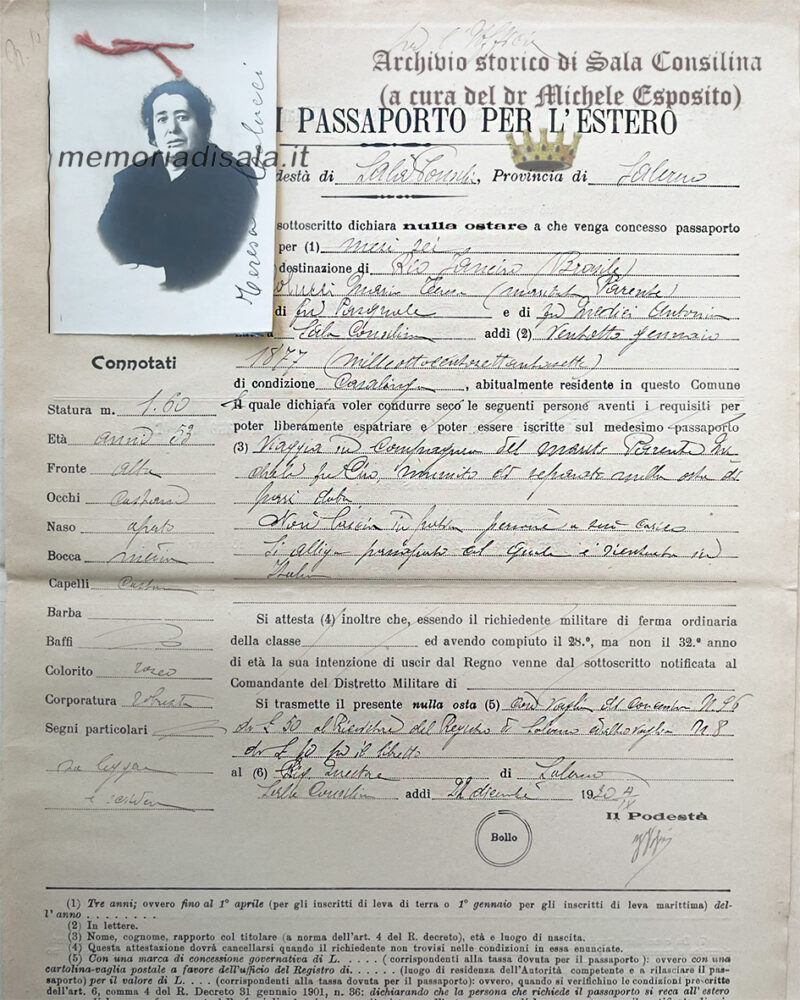 Archivio storico di Sala Consilina
(a cura del dr Michele Esposito)
I PASSAPORTO PER L'ESTERO
memoriadisala.it
Teresa
destà di Sala Consilina, Provincia di Salerno
sottoscritto dichiara nulla ostare a che venga concesso passaporto
per (1) mesi sei
destinazione di Rio Janeiro (Brasile)
Maria Teresa (Parente)
di fu Pasquale e di fu Medici Antonia
Sala Consilina addì (2) Ventotto gennaio
1877 (milleottocentosettantasette)
di condizione Casalinga, abitualmente residente in questo Comune
il quale dichiara voler condurre seco le seguenti persone aventi i requisiti per
poter liberamente espatriare e poter essere iscritte sul medesimo passaporto
(3) Viaggia in compagnia del marito Parente Mi
chele fu Ciro, munito di separato nulla osta di
pari data
Non lascia in patria persone a suo carico
Si allega passaporto col quale è rientrata in
Italia
Connotati
Statura m. 1.60
Età anni 53
Fronte alta
Occhi castani
Naso
Bocca media
Capelli
Barba
Baffi
Colorito roseo
Corporatura robusta
Segni particolari
sa leggere
e scrivere
Si attesta (4) inoltre che, essendo il richiedente militare di ferma ordinaria
della classe ed avendo compiuto il 28.º, ma non il 32.º anno
di età la sua intenzione di uscir dal Regno venne dal sottoscritto notificata al
Comandante del Distretto Militare di
Si trasmette il presente nulla osta (5) con vaglia N. 96
da £ 50 al Ricevitore del Registro di Salerno vaglia N 8
da £ per il libretto
al (6) Sig. Questore di Salerno
Sala Consilina addì 22 dicembre 19
Il Podestà
Bollo
(1) Tre anni; ovvero fino al 1º aprile (per gli inscritti di leva di terra o 1º gennaio per gli inscritti di leva marittima) del-
l'anno . . . . . . . .
(2) In lettere.
(3) Nome, cognome, rapporto col titolare (a norma dell'art. 4 del R. decreto), età e luogo di nascita.
(4) Questa attestazione dovrà cancellarsi quando il richiedente non trovisi nelle condizioni in essa enunciate.
(5) Con una marca di concessione governativa di L. . . . . (corrispondenti alla tassa dovuta per il passaporto ): ovvero con una
cartolina-vaglia postale a favore dell'ufficio del Registro di. . . . . (luogo di residenza dell'Autorità competente e a rilasciare il pas-
saporto) per il valore di L. . . . . (corrispondenti alla tassa dovuta per il passaporto); ovvero, quando si verifichino le condizioni prescritte
dell'art. 6, comma 4 del R. Decreto 31 gennaio 1901, n. 36: dichiarando che la persona che richiede il passaporto si reca all'estero